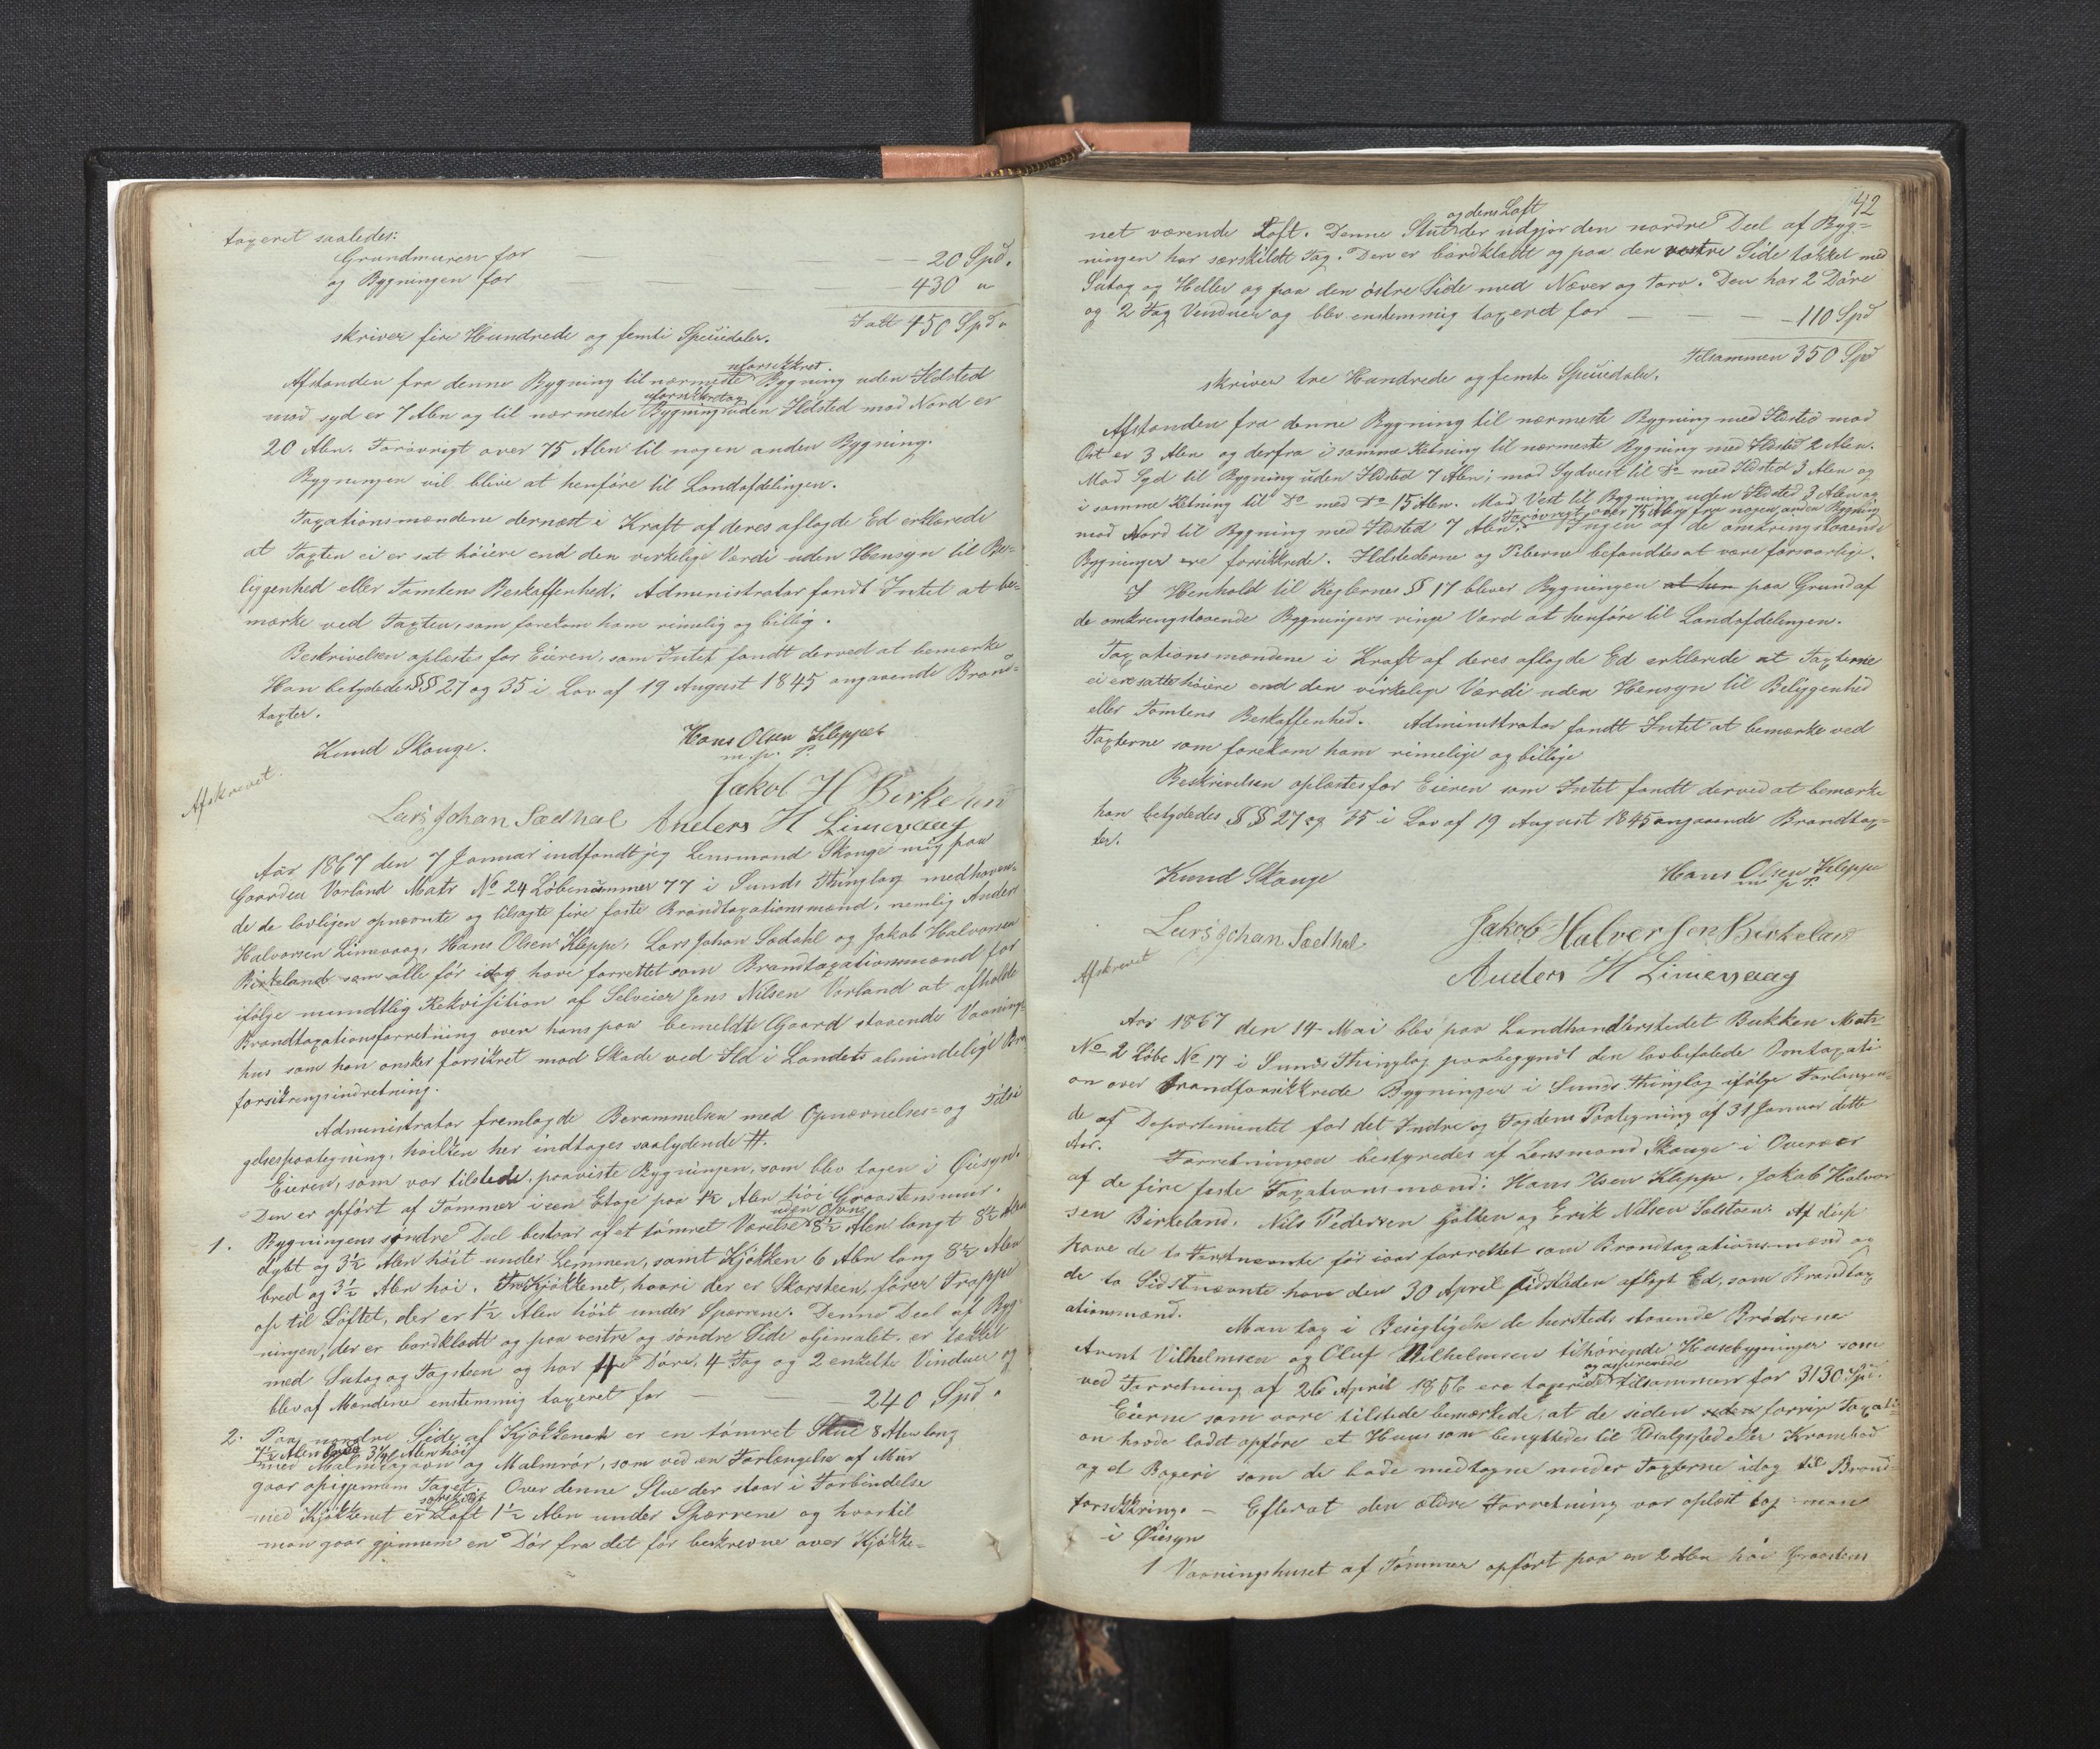 taxeret saaledes:
Grundmuren for — — — 20 Spd.
og Bygningen for — — — 430 "
Ialt 450 Spd.
skriver fire Hundrede og femti Speciedaler.
uforsikkret.
Afstanden fra denne Bygning til nærmeste Bygning uden Ildsted
uforsikkret og
mod syd er 7 Alen og til nærmeste Bygning uden Ildsted mod Nord er
20 Alen. Forøvrigt over 75 Alen til nogen anden Bygning.
Bygningen vil blive at henføre til Landafdelingen.
Taxationsmændene dernæst i Kraft af deres aflagde Ed erklærede
at Taxten ei er sat høiere end den virkelige Værdi uden Hensyn til Be-
liggenhed eller Tomtens Beskaffenhed. Administrator fandt Intet at be-
mærke ved Taxten, som forekom ham rimelig og billig.
Beskrivelsen oplæstes for Eieren, som Intet fandt derved at bemærke
Han betydedes §§ 27 og 35 i Lov af 19 August 1845 angaaende Brand-
taxter.
Knud Skauge.
Hans Olsen Kleppe
m. p. P.
Afskrevet.
Jakob H Birkeland
Lars Johan Sædhal Anders H Limevaag
Aar 1867 den 7 Januar indfandt jeg Lensmand Skauge mig paa
Gaarden Vorland Matr No 24 Løbenummer 77 i Sunds Thinglag medhaven-
de de lovligen opnævnte og tilsagte fire faste Brandtaxationsmænd, nemlig Anders
Halvorsen Limevaag, Hans Olsen Kleppe, Lars Johan Sædahl og Jakob Halvorsen
Birkeland som alle før idag have forrettet som Brandtaxationsmænd for
ifølge mundtlig Rekvisition af Selveier Jens Nilsen Vorland at afholde
Brandtaxationsforretning over hans paa bemeldte Gaard staaende Vaanings-
hus som han ønsker forsikret mod Skade ved Ild i Landets almindelige Bra
forsikringsindretning.
Administrator fremlagde Berammelsen med Opnævnelses- og Tilsi
gelsespaategning, hvilken her indtages saalydende #.
Eieren, som var tilstede, paaviste Bygningen, som blev tagen i Øiesyn.
Den er opført af Tømmer i een Etage paa 1½ Alen høi Graastensmur.
uden Ovne
1. Bygningens søndre Deel bestaar af et tømret Værelse 8½ Alen langt 8½ Alen
dybt og 3½ Alen høit under Lemmen, samt Kjøkken 6 Alen lang 8½ Alen
bred og 3½ Alen høi. Fra Kjøkkenet, hvori der er Skorsteen, fører Trappe
op til Loftet, der er 1½ Alen høit under Sperrene. Denne Deel af Byg-
ningen, der er bordklædt og paa vestre og søndre Side oljemalet, er tækket
med Sutag og Tagsteen og har 4re Døre, 4 Fag og 2 enkelte Vinduer og
blev af Mændene enstemmig taxeret for — — 240 Spd.
2. Paa nordre Side af Kjøkkenet er en tømret Stue 8 Alen lang
7½ Alen bred 3¼ Alen høi
med Malmkagovn og Malmrør, som ved en Forlængelse af Mur
gaar opigjennem Taget. Over denne Stue der staar i Forbindelse
særskilt
med Kjøkkenet er Loft 1½ Alen under Sperrene og hvortil
man gaar gjennem en Dør fra det før beskrevne over Kjøkke-
42
og dens Loft
net værende Loft. Denne Stue der udgjør den nordre Deel af Byg-
ningen har særskildt Tag. Den er bordklædt og paa den vestre Side tækket med
Sutag og Heller og paa den østre Side med Næver og Torv. Den har 2 Døre
og 2 Fag Vinduer og blev enstemmig taxeret for — — — 110 Spd
Tilsammen 350 Spd
skriver tre Hundrede og femti Speciedaler.
Afstanden fra denne Bygning til nærmeste Bygning med Ildsted mod
Øst er 3 Alen og derfra i samme Retning til nærmeste Bygning med Ildsted 2 Alen.
Mod Syd til Bygning uden Ildsted 7 Alen; mod Sydvest til Do med Ildsted 3 Alen og
i samme Retning til Do med Do 15 Alen. Mod Vest til Bygning uden Ildsted 3 Alen og
Forøvrigt over 75 Alen fra nogen anden Bygning
mod Nord til Bygning med Ildsted 7 Alen. Ingen af de omkringstaaende
Bygninger ere forsikkrede. Ildstederne og Piberne befandtes at være forsvarlige.
I Henhold til Reglernes § 17 bliver Bygningen at hen paa Grund af
de omkringstaaende Bygningers ringe Værd at henføre til Landafdelingen.
Taxationsmændene i Kraft af deres aflagde Ed erklærede at Taxterne
ei ere satte høiere end den virkelige Værdi uden Hensyn til Beliggenhed
eller Tomtens Beskaffenhed. Administrator fandt Intet at bemærke ved
Taxterne som forekom ham rimelige og billige
Beskrivelsen oplæstes for Eieren som Intet fandt derved at bemærke
han betydedes §§ 27 og 35 i Lov af 19 August 1845 angaaende Brandtax-
ter.
Knud Skauge
Hans Olsen Kleppe
m p P.
Lars Johan Sædhal
Jakob Halversen Birkeland
Afskrevet
Anders H Limevaag
Aar 1867 den 14 Mai blev paa Landhandlerstedet Bukken Matr
No 2 Løbe No 17 i Sunds Thinglag paabegyndt den lovbefalede Omtaxati
on over brandforsikkrede Bygninger i Sunds Thinglag ifølge Forlangen-
de af Departementet for det Indre og Fogdens Paategning af 31 Januar dette
Aar.
Forretningen bestyredes af Lensmand Skauge i Overvær
af de fire faste Taxationsmænd: Hans Olsen Kleppe, Jakob Halvor
sen Birkeland, Nils Pedersen Golten og Erik Nilsen Selstøen. Af disse
have de to Førstnævnte før iaar forrettet som Brandtaxationsmænd og
de to Sidstnævnte have den 30 April sidstleden aflagt Ed, som Brandtax
ationsmænd.
Man tog i Besigtigelse de hersteds staaende Brødrene
Arent Vilhelmsen og Oluf Vilhelmsen tilhørende Husebygninger som
og assurerede
ved Forretning af 26 April 1856 ere taxerede tilsammen for 3130 Spd.
Eierne som vare tilstede bemærkede, at de siden forrige Taxati-
on havde ladet opføre et Huus som benyttedes til Udsalgssted eller Krambod
og et Bageri som de bade medtagne under Taxterne idag til Brand-
forsikkring. — Efterat den ældre Forretning var oplæst tog man
i Øiesyn
1 Vaaningshuset af Tømmer opført paa en 2 Alen høi Graasteens